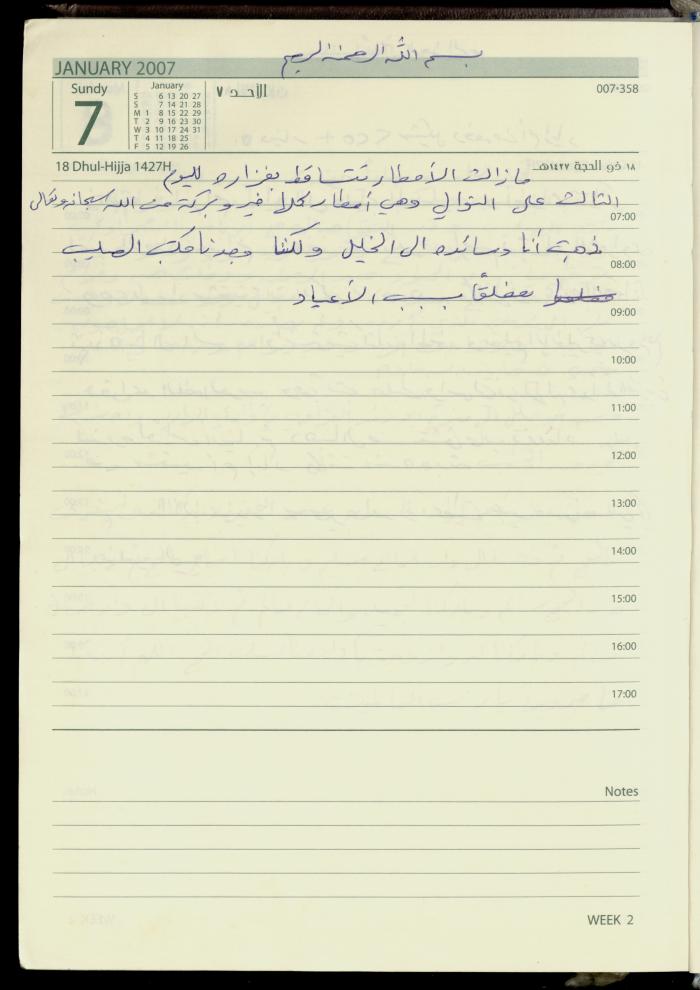 بسم الله الرحمن الرحيم
JANUARY 2007
Sundy
7
January
S 6 13 20 27
S 7 14 21 28
M 1 8 15 22 29
T 2 9 16 23 30
W 3 10 17 24 31
T 4 11 18 25
F 5 12 19 26
الأحد ٧
007-358
18 Dhul-Hijja 1427H
١٨ ذو الحجة ١٤٢٧هـ
مازالت الأمطار تتساقط بغزاره لليوم
الثالث على التوالي وهي أمطار كلها خير وبركة من الله سبحانه وتعالى
07:00
ذهبت أنا وسائده الى الخليل ولكننا وجدنا مكتب الصليب
08:00
مغلقاً بسبب الأعياد
09:00
10:00
11:00
12:00
13:00
14:00
15:00
16:00
17:00
Notes
WEEK 2